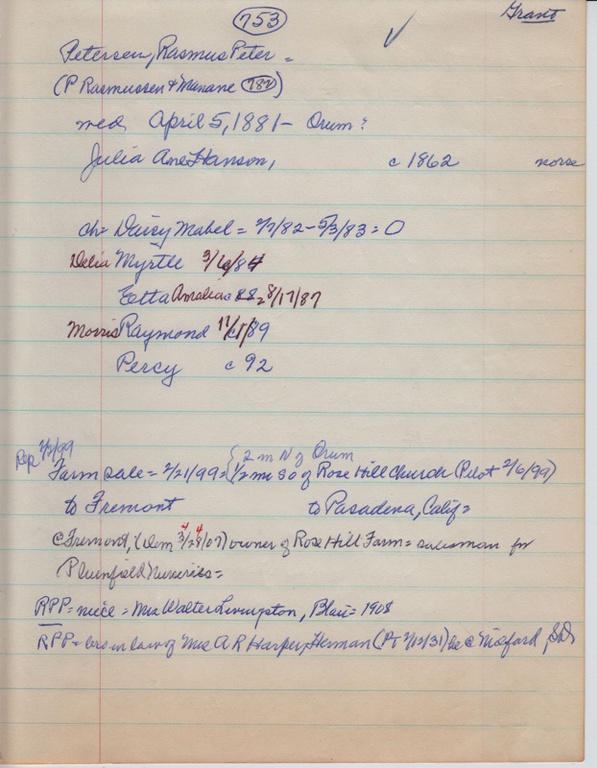 753
Grant
✓
Petersen, Rasmus Peter =
(P Rasmussen & Manane 782)
wed, April 5, 1881 - Orum:
Julia Ane Hanson, c 1862 norse
ch = Daisy Mabel = 2/7/82 - 5/3/83 = 0
Delia Myrtle 3/6/84
Etta Amalia c 88 = 8/17/87
Morris Raymond 11/1/89
Percy c 92
Rep 2/2/99 { 2 m N of Orum
Farm sale = 2/21/99 = { 1/2 mi so of Rose Hill Church (Pilot 2/6/99)
to Fremont to Pasadena, Calif =
@ Fremont, (Dem 3/28/07) owner of Rose Hill Farm = salesman for
Plumfield Nurseries =
RPP = niece = Mrs Walter Livingston, Blair = 1908
RPP = bro in law of Mrs A R Harper, Herman (PT 2/12/31) he @ Milford, SD